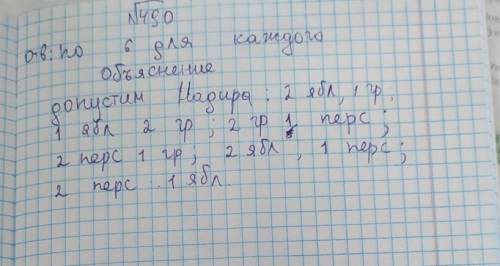 √490
отв: по 6 для каждого
Объяснение
допустим Надира: 2 ябл, 1 гр,
1 ябл 2 гр; 2 гр 1 перс;
2 перс 1 гр; 2 ябл, 1 перс;
2 перс 1 ябл.